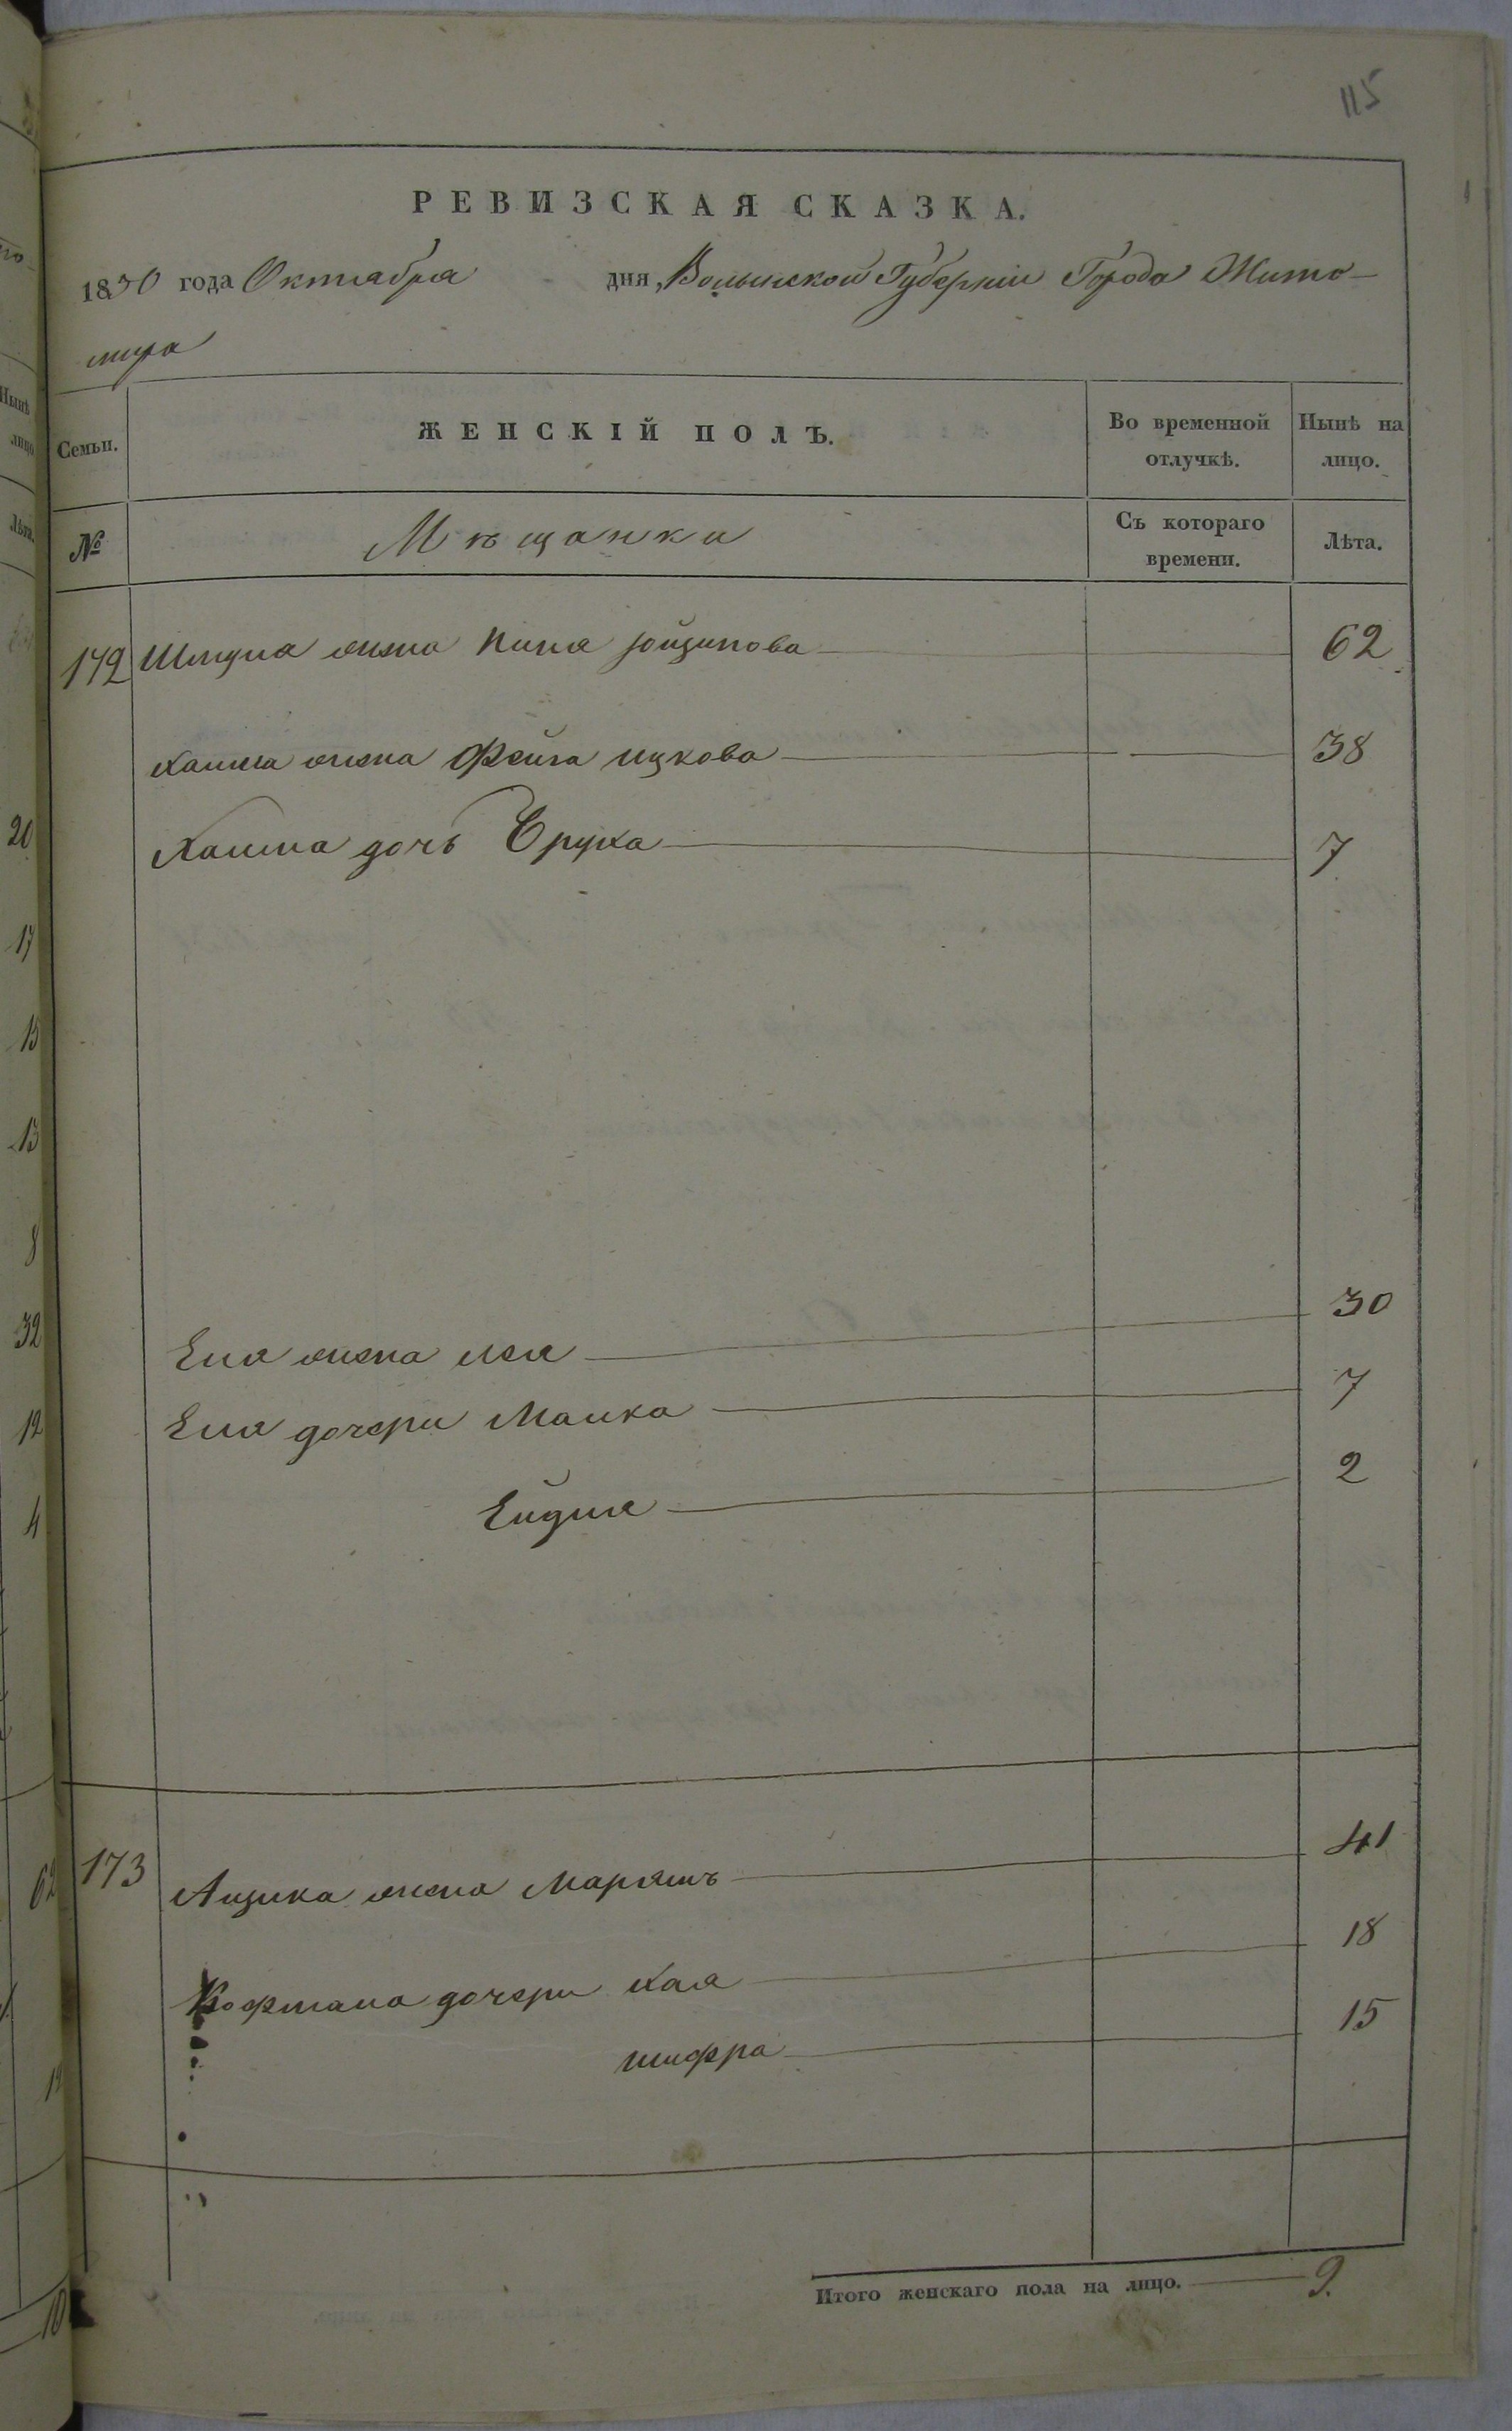 115
РЕВИЗСКАЯ СКАЗКА.
1850 года Октября дня, Волынской Губерніи Города Жито-
мира
Семьи.
ЖЕНСКІЙ ПОЛЪ.
Во временной отлучкѣ.
Нынѣ на лицо.
№
Мѣщанки
Съ котораго времени.
Лѣта.
172 Шмуля жена Пиня 62
Хаима жена Фейга ицкова 38
Хаима дочь Бруха 7
Еля жена лея 30
Еля дочери Малка 7
Ейдля 2
173 Аицика жена Марямъ 41
Кофмана дочери хая 18
шифра 15
Итого женскаго пола на лицо. 9.